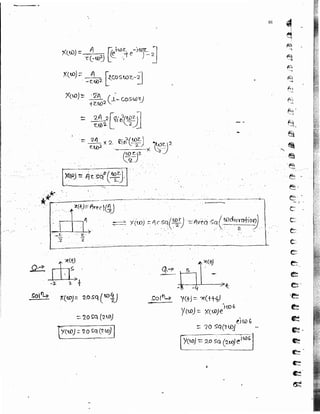 X(ω) = A / τ(-ω²) [e^{jωτ} + e^{-jωτ} - 2]
X(ω) = A / -τω² [2cosωτ - 2]
X(ω) = 2A / τω² (1 - cosωτ)
= 2A / τω² 2 [sin²(ωτ/2)]
= 2A / τω² × 2 · sin²(ωτ/2) / (ωτ/2)² × (ωτ/2)²
X(ω) = Aτ sa²(ωτ/2)
x(t) = A rect(t/τ)
A
-τ/2 τ/2
⇌ X(ω) = Aτ sa(ωτ/2) = Area sa(ω(duration)/2)
Q→ x(t) 5
-2 2 t
Q→ x(t) 5
-8 -4
Sol→ X(ω) = 20 sa(ω4/2)
= 20 sa(2ω)
X(ω) = 20 sa(2ω)
Sol→ Y(t) = x(t+6)
Y(ω) = X(ω) e^{jω6}
= 20 sa(2ω) e^{jω6}
Y(ω) = 20 sa(2ω) e^{jω6}